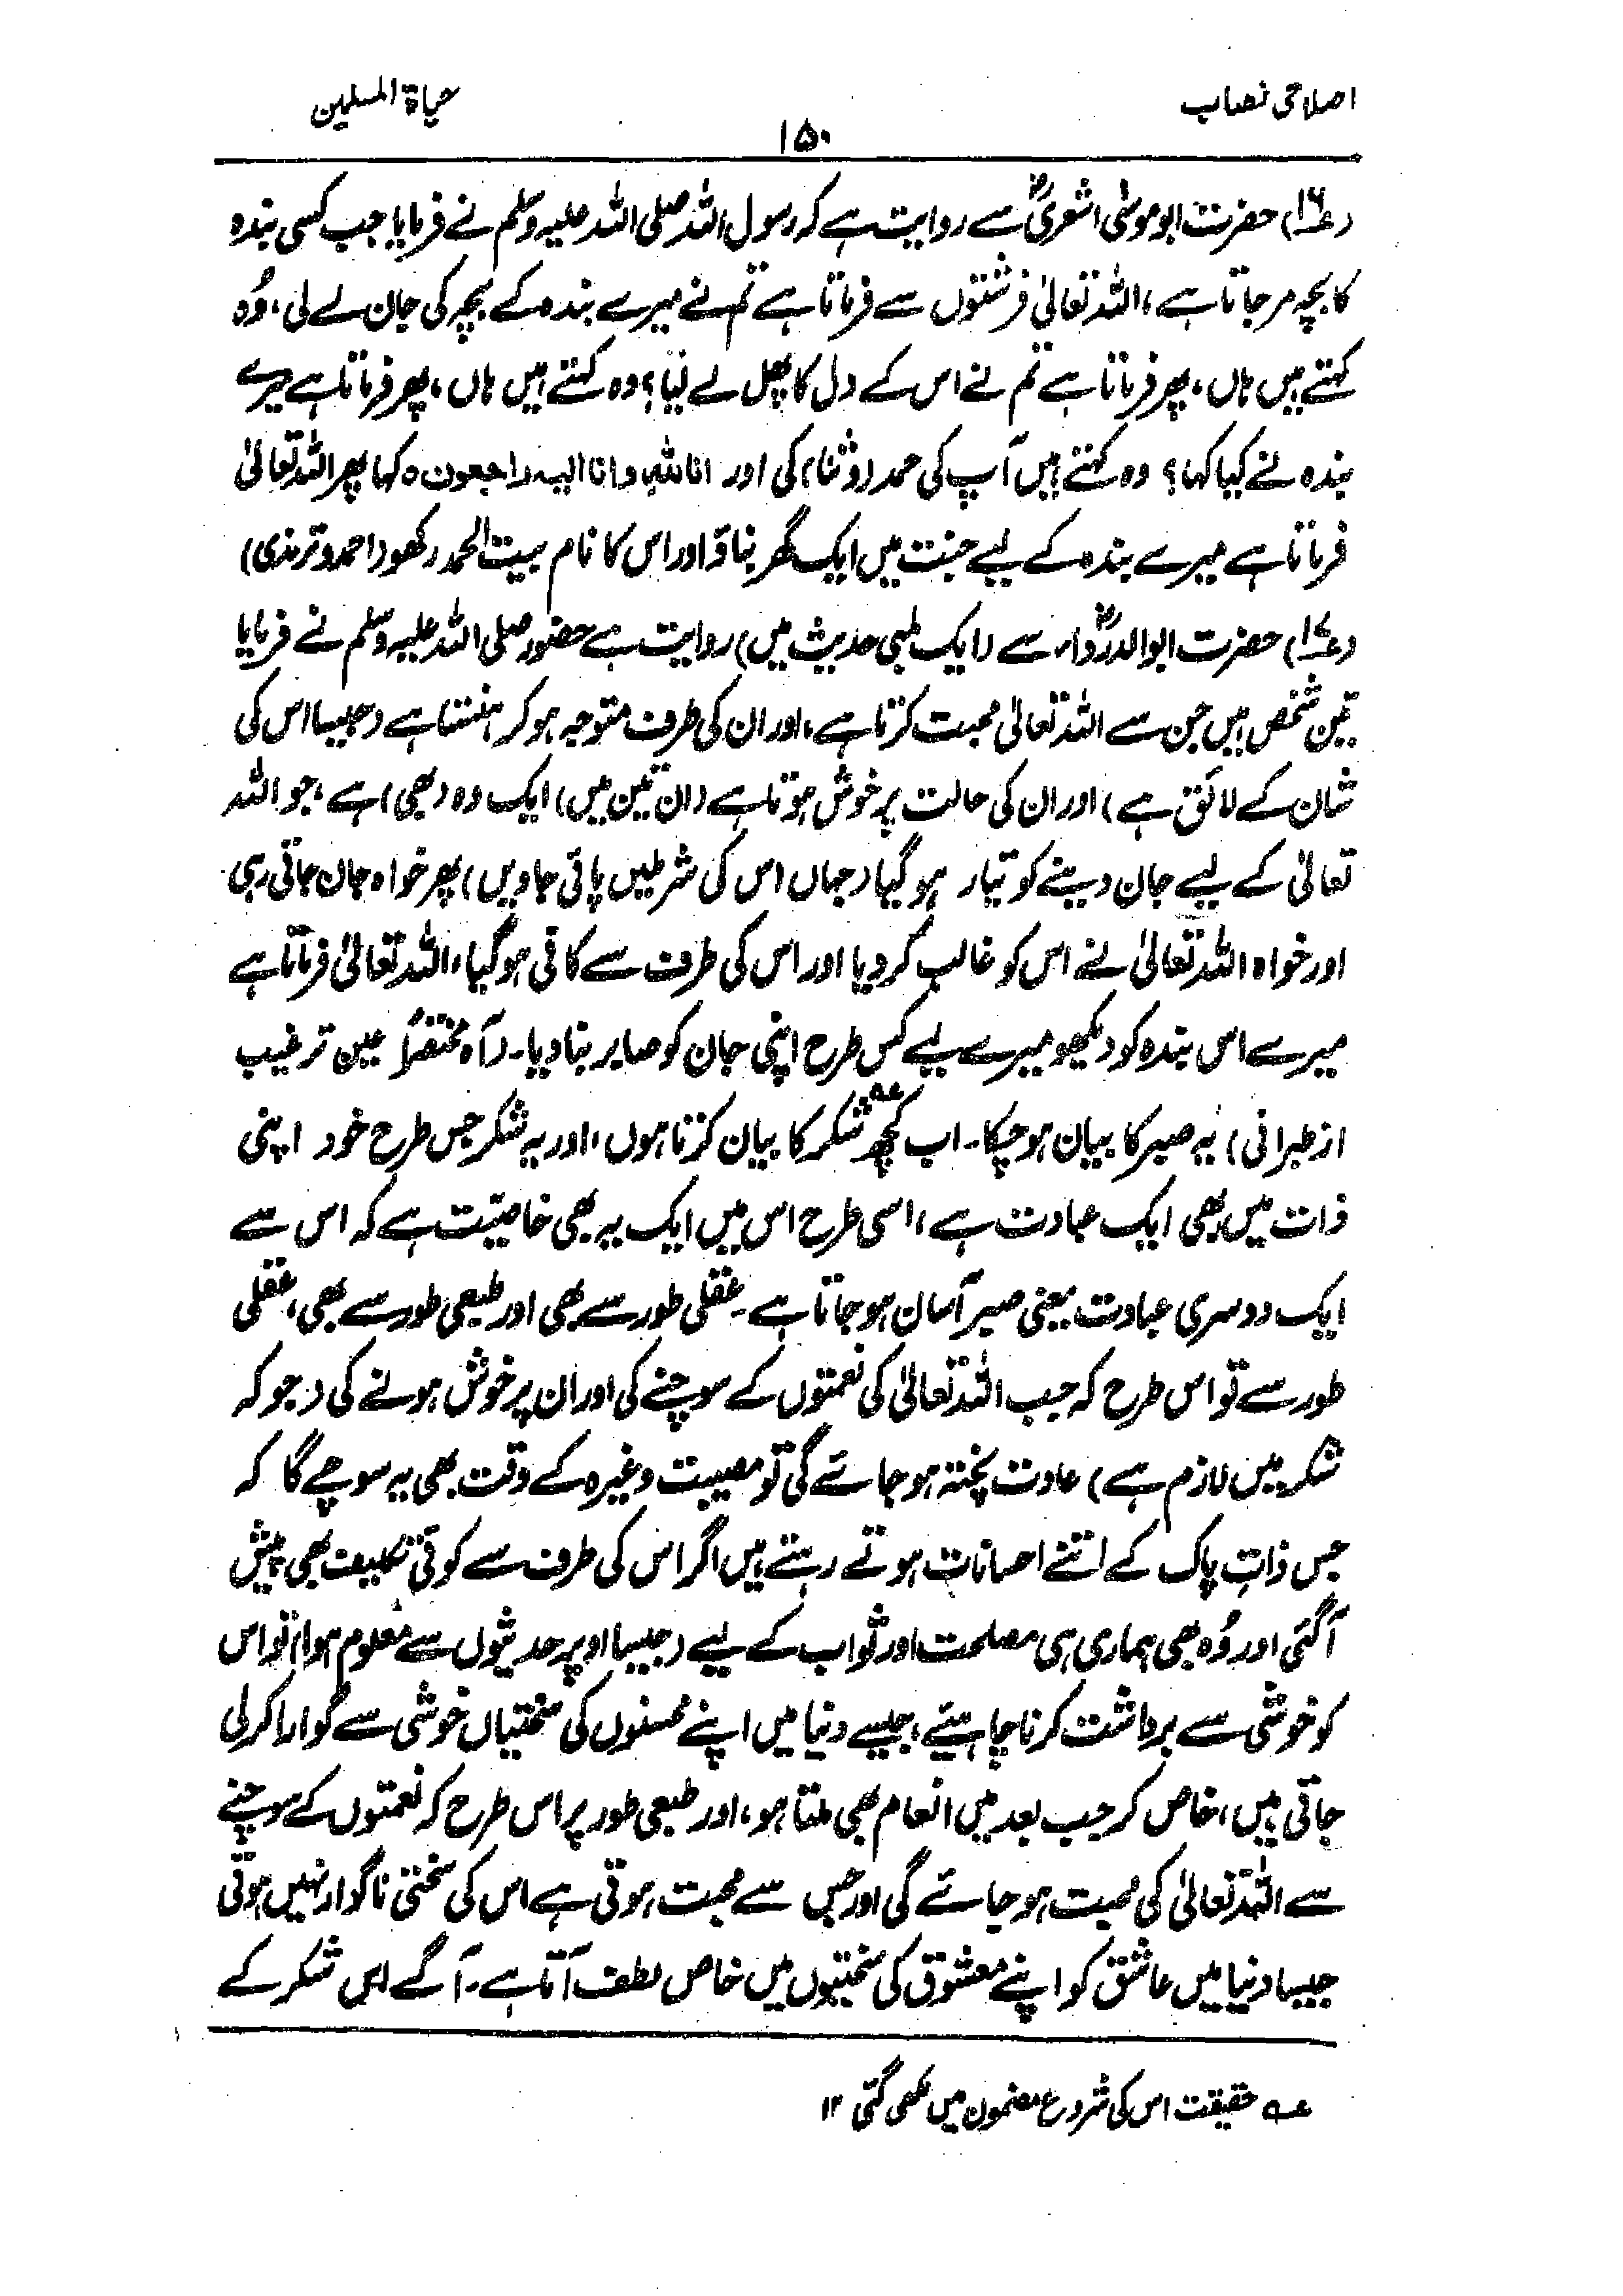 اصلاحی نصاب
حیاۃ المسلمین
۱۵۰
(ع۱۶) حضرت ابو موسٰی اشعریؓ سے روایت ہے کہ رسول اللہ صلی اللہ علیہ وسلم نے فرمایا جب کسی بندہ
کا بچہ مر جاتا ہے، اللہ تعالیٰ فرشتوں سے فرماتا ہے تم نے میرے بندہ کے بچہ کی جان لے لی، وُہ
کہتے ہیں ہاں، پھر فرماتا ہے تم نے اس کے دل کا پھل لے لیا؟ وہ کہتے ہیں ہاں، پھر فرماتا ہے میرے
بندہ نے کیا کہا؟ وہ کہتے ہیں آپ کی حمد (و ثنا) کی اور انا للہ وانا الیہ راجعون ہ کہا پھر اللہ تعالیٰ
فرماتا ہے میرے بندہ کے لیے جنت میں ایک گھر بناؤ اور اس کا نام بیت الحمد رکھو (احمد و ترمذی)
(ع۱۷) حضرت ابوالدرداءؓ سے (ایک لمبی حدیث میں) روایت ہے حضور صلی اللہ علیہ وسلم نے فرمایا
تین شخص ہیں جن سے اللہ تعالیٰ محبت کرتا ہے، اور ان کی طرف متوجہ ہو کر ہنستا ہے (جیسا اس کی
شان کے لائق ہے) اور ان کی حالت پر خوش ہوتا ہے (ان تین میں) ایک وہ (بھی) ہے، جو اللہ
تعالیٰ کے لیے جان دینے کو تیار ہو گیا (جہاں اس کی شرطیں پائی جاویں) پھر خواہ جان جاتی رہی
اور خواہ اللہ تعالیٰ نے اس کو غالب کر دیا اور اس کی طرف سے کافی ہو گیا، اللہ تعالیٰ فرماتا ہے
میرے اس بندہ کو دیکھو میرے لیے کس طرح اپنی جان کو صابر بنا دیا۔ (آہ مختصراً عین ترغیب
از طبرانی) یہ صبر کا بیان ہو چکا۔ اب کچھ شکرعہ کا بیان کرتا ہوں، اور یہ شکر جس طرح خود اپنی
ذات میں بھی ایک عبادت ہے، اسی طرح اس میں ایک یہ بھی خاصیّت ہے کہ اس سے
ایک دوسری عبادت یعنی صبر آسان ہو جاتا ہے۔ عقلی طور سے بھی اور طبعی طور سے بھی، عقلی
طور سے تو اس طرح کہ جب اللہ تعالیٰ کی نعمتوں کے سوچنے کی اور ان پر خوش ہونے کی (جو کہ
شکر میں لازم ہے) عادت پختہ ہو جائے گی تو مصیبت وغیرہ کے وقت بھی یہ سوچے گا کہ
جس ذات پاک کے اتنے احسانات ہوتے رہتے ہیں اگر اس کی طرف سے کوئی تکلیف بھی پیش
آ گئی اور وُہ بھی ہماری ہی مصلحت اور ثواب کے لیے (جیسا اوپر حدیثوں سے معلوم ہوا) تو اس
کو خوشی سے برداشت کرنا چاہیئے، جیسے دنیا میں اپنے محسنوں کی سختیاں خوشی سے گوارا کر لی
جاتی ہیں، خاص کر جب بعد میں انعام بھی ملتا ہو، اور طبعی طور پر اس طرح کہ نعمتوں کے سوچنے
سے اللہ تعالیٰ کی محبت ہو جائے گی اور جس سے محبت ہوتی ہے اس کی سختی ناگوار نہیں ہوتی
جیسا دنیا میں عاشق کو اپنے معشوق کی سختیوں میں خاص لطف آتا ہے۔ آگے اس شکر کے
عہ حقیقت اس کی شروع مضمون میں لکھی گئی ۱۲